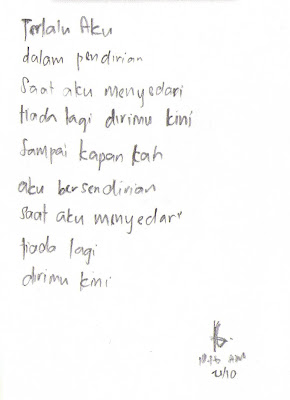 Terlalu Aku
dalam pendirian
Saat aku menyedari
tiada lagi dirimu kini
Sampai kapan kah
aku bersendirian
saat aku menyedari
tiada lagi
dirimu kini
AM
21/10